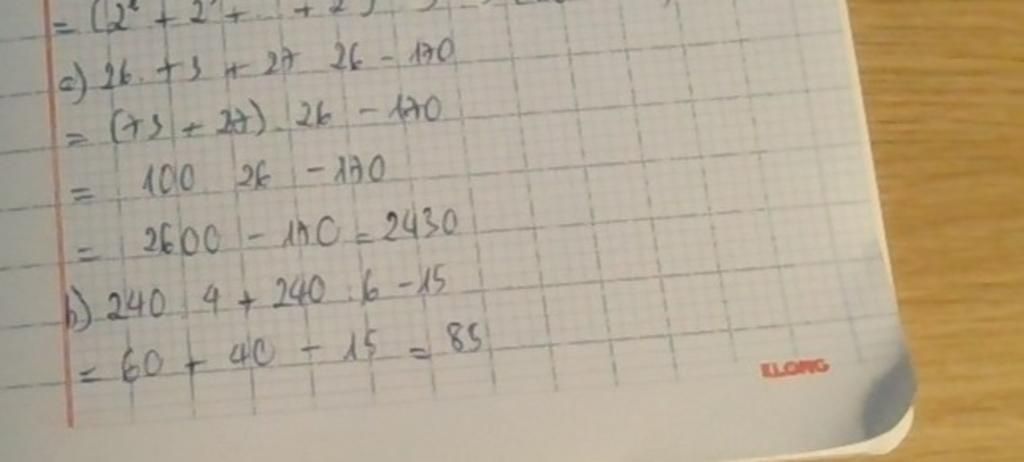 = (2² + 2
c) 26 . 73 + 27 26 - 170
= (73 + 27) . 26 - 170
= 100 26 - 170
= 2600 - 170 = 2430
b) 240 : 4 + 240 : 6 - 15
= 60 + 40 - 15 = 85
KLONG